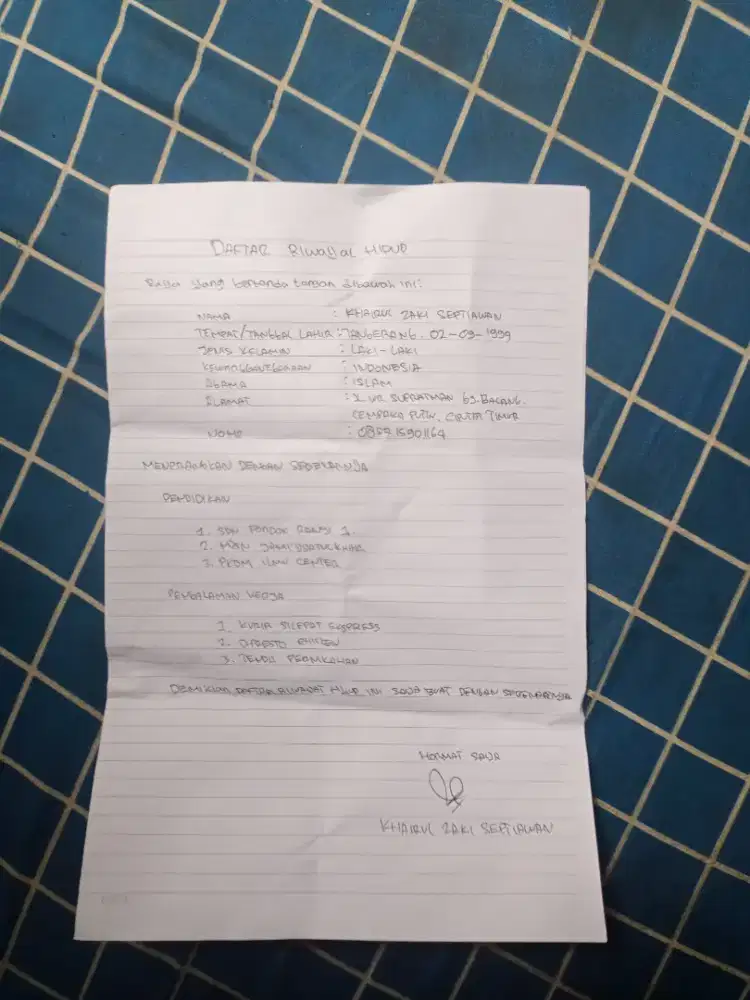 DAFTAR RIWAYAT HIDUP
Saya yang bertanda tangan dibawah ini:
NAMA : KHAIRUL ZAKI SEPTIAWAN
TEMPAT/TANGGAL LAHIR : TANGERANG. 02-09-1999
JENIS KELAMIN : LAKI-LAKI
KEWARGANEGARAAN : INDONESIA
AGAMA : ISLAM
ALAMAT : JL WR SUPRATMAN
CEMPAKA PUTIH, CIPUTAT TIMUR
NOHP
MENERANGKAN DENGAN SEBENARNYA
PENDIDIKAN
1. SDN PONDOK 1.
2. MTSN
3. PKBM ILMU CENTER
PENGALAMAN KERJA
1. KURIR SICEPAT EXPRESS
2. D'BESTO CHICKEN
3. TENDA PERNIKAHAN
DEMIKIAN DAFTAR RIWAYAT HIDUP INI SAYA BUAT DENGAN SEBENARNYA
HORMAT SAYA
KHAIRUL ZAKI SEPTIAWAN